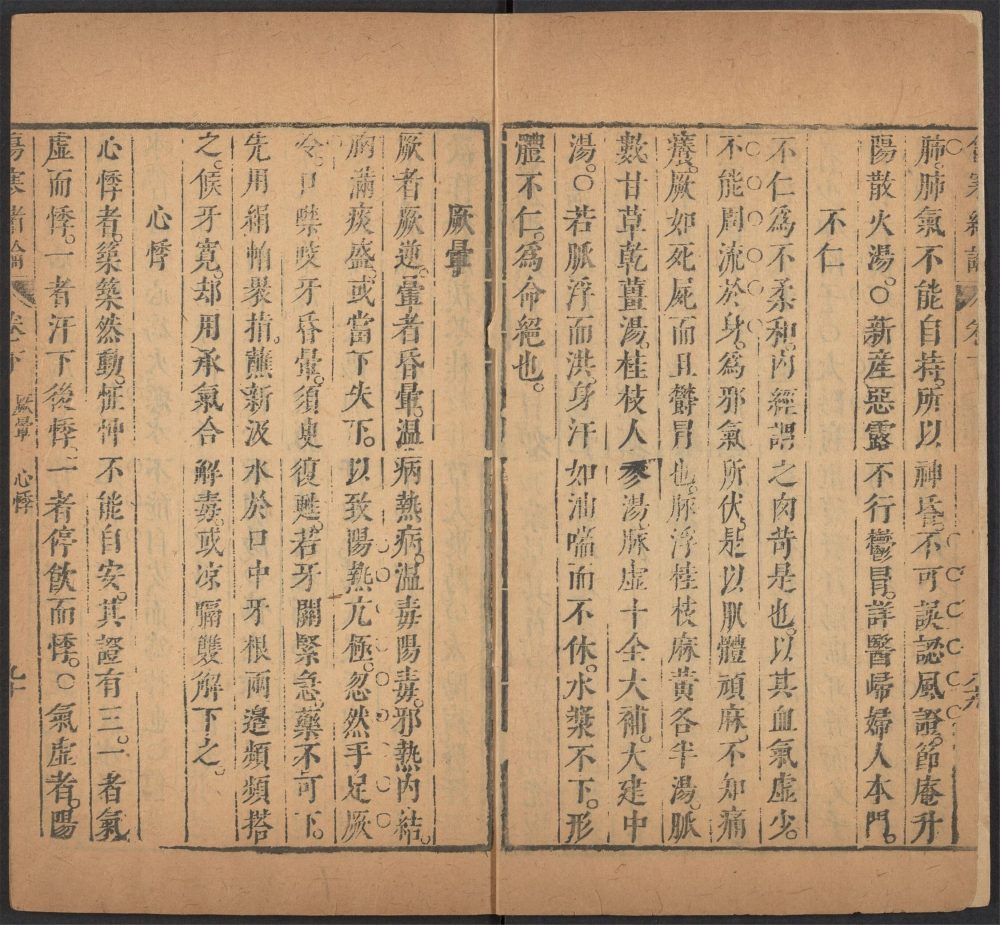 肺。肺氣不能自持。所以神昏。不可誤認風證。節庵升
陽散火湯。○新產惡露不行鬱冒。詳醫歸婦人本門。
不仁
不仁爲不柔和。內經謂之肉苛是也。以其血氣虛少。
不能周流於身。爲邪氣所伏。是以肌體頑麻。不知痛
癢。厥如死屍而且鬱冒也。脈浮桂枝麻黃各半湯。脈
數甘草乾薑湯。桂枝人參湯。脈虛十全大補。大建中
湯。○若脈浮而洪。身汗如油。喘而不休。水漿不下。形
體不仁。爲命絕也。
厥暈
厥者厥逆。暈者昏暈。溫病熱病。溫毒陽毒。邪熱內結。
胸滿痰盛。或當下失下。以致陽熱亢極。忽然手足厥
冷。口噤咬牙昏暈。須臾復甦。若牙關緊急。藥不可下。
先用絹帕裹指。蘸新汲水於口中牙根兩邊頻頻搭
之。候牙寬。却用承氣合解毒。或凉膈雙解下之。
心悸
心悸者。築築然動。怔忡不能自安。其證有三。一者氣
虛而悸。一者汗下後悸。一者停飲而悸。○氣虛者。陽
傷寒緒論 卷下 厥暈 心悸 九十